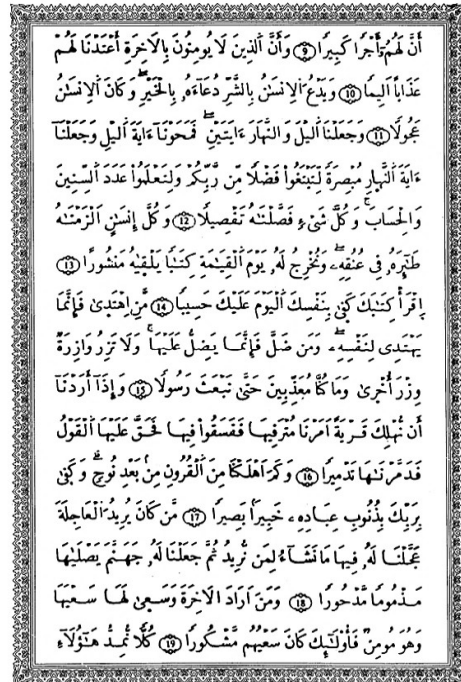 أَنَّ لَهُمُۥٓ أَجْرًا كَبِيرًا ۹ وَأَنَّ ٱلذِينَ لَا يُومِنُونَ بِالَاخِرَةِ أَعْتَدْنَا لَهُمْ
عَذَابًا اَلِيمًا ۱۰ وَيَدْعُ اُ۬لِانسَٰنُ بِالشَّرِّ دُعَآءَهُۥ بِالْخَيْرِ وَكَانَ اَ۬لِانسَٰنُ
عَجُولًا ۱۱ وَجَعَلْنَا اَ۬ليْلَ وَالنَّهَارَ ءَايَتَيْنِ فَمَحَوْنَآ ءَايَةَ اَ۬ليْلِ وَجَعَلْنَآ
ءَايَةَ اَ۬لنَّهَارِ مُبْصِرَةً لِّتَبْتَغُوا۟ فَضْلًا مِّن رَّبِّكُمْ وَلِتَعْلَمُوا۟ عَدَدَ اَ۬لسِّنِينَ
وَالْحِسَابَ وَكُلَّ شَےْءٍ فَصَّلْنَٰهُ تَفْصِيلًا ۱۲ وَكُلَّ إِنسَٰنٍ اَلْزَمْنَٰهُ
طَٰٓئِرَهُۥ فِے عُنُقِهِۦ وَنُخْرِجُ لَهُۥ يَوْمَ اَ۬لْقِيَٰمَةِ كِتَٰبًا يَلْقَىٰهُ مَنشُورًا ۱۳
اِقْرَأْ كِتَٰبَكَ كَفَىٰ بِنَفْسِكَ اَ۬لْيَوْمَ عَلَيْكَ حَسِيبًا ۱۴ مَّنِ اِ۪هْتَدَىٰ فَإِنَّمَا
يَهْتَدِے لِنَفْسِهِۦ وَمَن ضَلَّ فَإِنَّمَا يَضِلُّ عَلَيْهَا وَلَا تَزِرُ وَازِرَةٌ
وِزْرَ أُخْرَىٰ وَمَا كُنَّا مُعَذِّبِينَ حَتَّىٰ نَبْعَثَ رَسُولًا ۱۵ وَإِذَآ أَرَدْنَآ
أَن نُّهْلِكَ قَرْيَةً اَمَرْنَا مُتْرَفِيهَا فَفَسَقُوا۟ فِيهَا فَحَقَّ عَلَيْهَا اَ۬لْقَوْلُ
فَدَمَّرْنَٰهَا تَدْمِيرًا ۱۶ وَكَمَ اَهْلَكْنَا مِنَ اَ۬لْقُرُونِ مِنۢ بَعْدِ نُوحٍ وَكَفَىٰ
بِرَبِّكَ بِذُنُوبِ عِبَادِهِۦ خَبِيرًۢا بَصِيرًا ۱۷ مَّن كَانَ يُرِيدُ اُ۬لْعَاجِلَةَ
عَجَّلْنَا لَهُۥ فِيهَا مَا نَشَآءُ لِمَن نُّرِيدُ ثُمَّ جَعَلْنَا لَهُۥ جَهَنَّمَ يَصْلَىٰهَا
مَذْمُومًا مَّدْحُورًا ۱۸ وَمَنَ اَرَادَ اَ۬لَاخِرَةَ وَسَعَىٰ لَهَا سَعْيَهَا
وَهُوَ مُومِنٌ فَأُو۟لَٰٓئِكَ كَانَ سَعْيُهُم مَّشْكُورًا ۱۹ كُلًّا نُّمِدُّ هَٰٓؤُلَآءِ